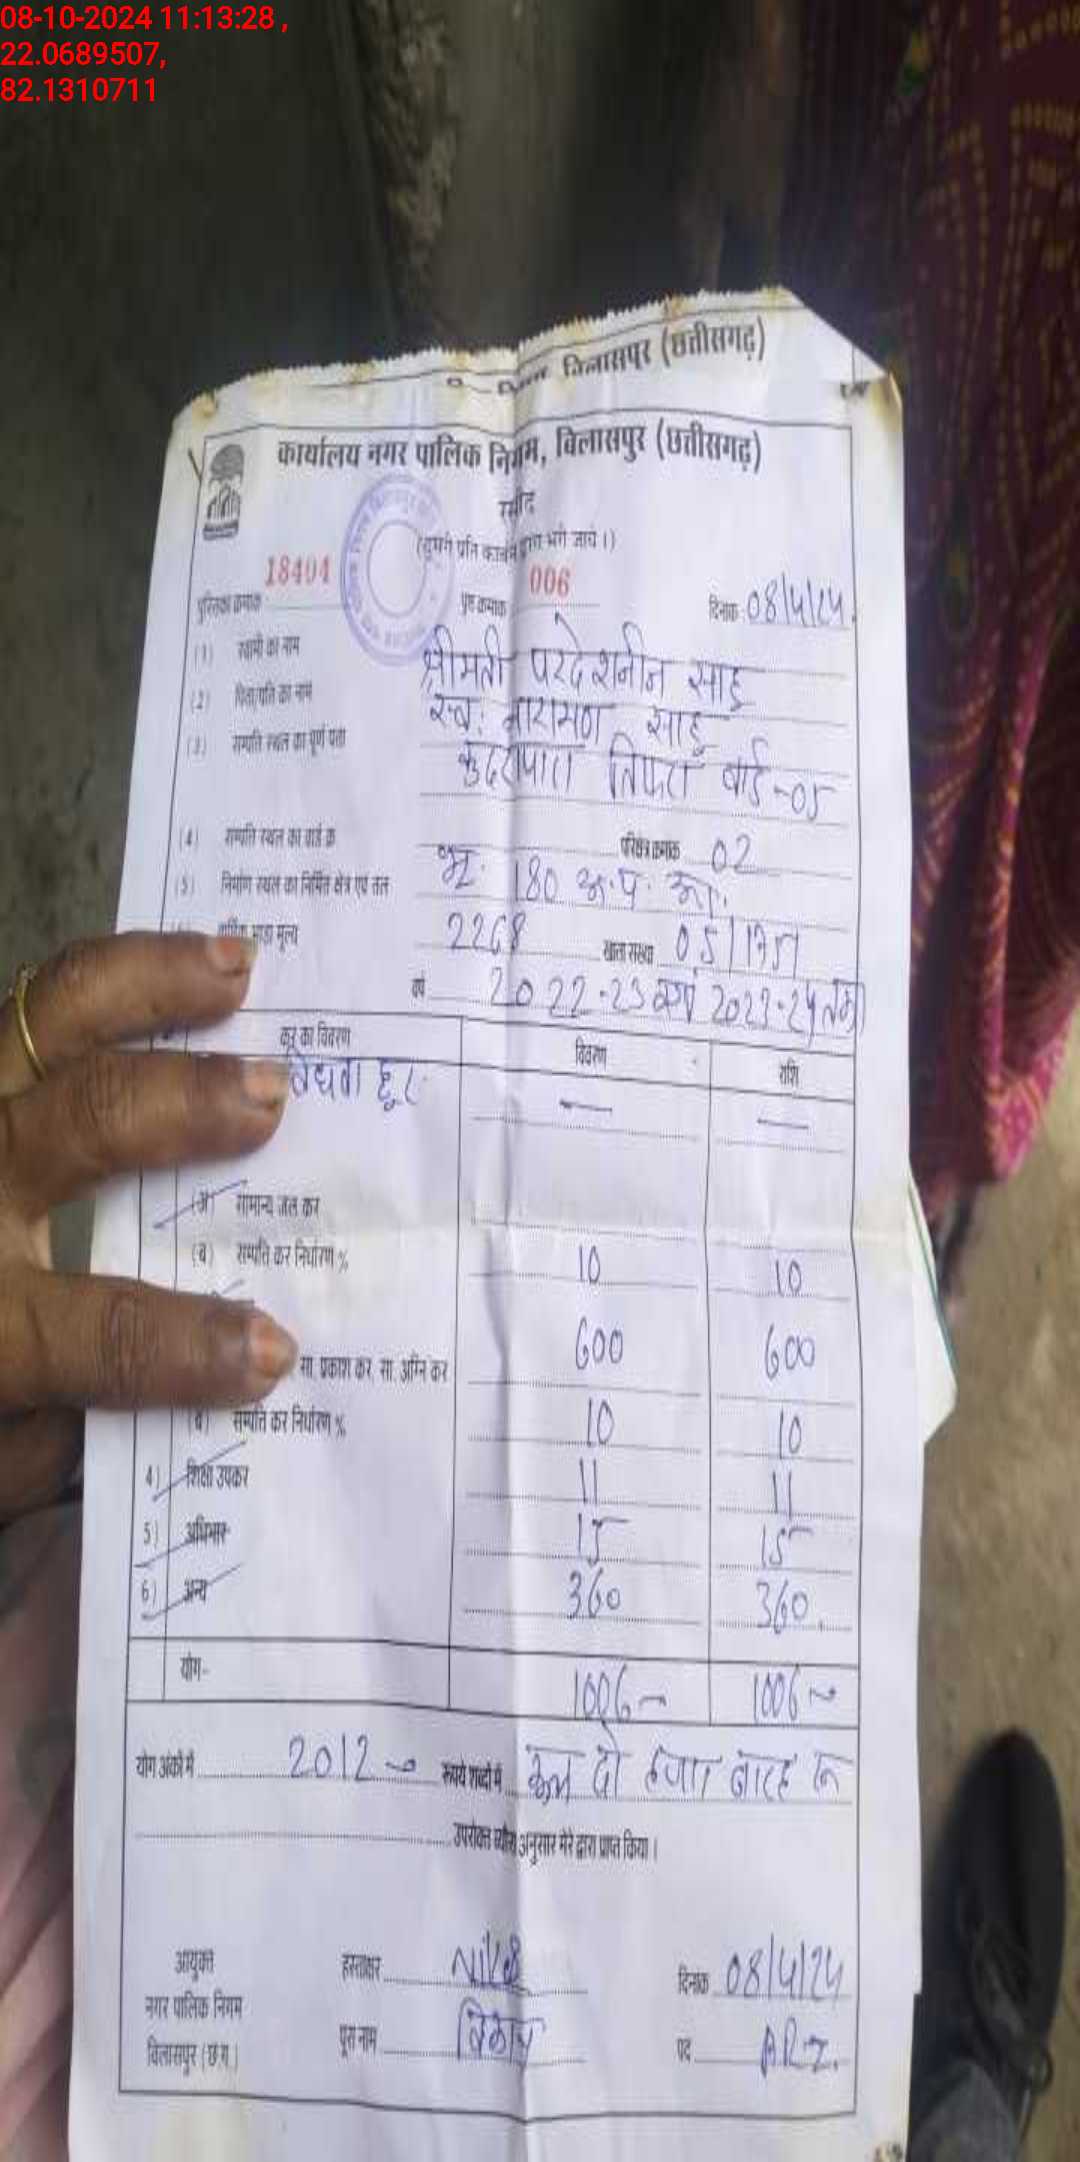 08-10-2024 11:13:28 ,
22.0689507,
82.1310711
बिलासपुर (छत्तीसगढ़)
कार्यालय नगर पालिक निगम, बिलासपुर (छत्तीसगढ़)
रसीद
पुस्तिका क्रमांक 18404 पृष्ठ क्रमांक 006 दिनांक 08/4/24
(1) स्वामी का नाम श्रीमती परदेशनीन साहू
(2) पिता/पति का नाम स्व. नारायण साहू
(3) सम्पत्ति स्थल का पूर्ण पता कुदरापारा तिफरा वार्ड-05
(4) सम्पत्ति स्थल का वार्ड क्र परिक्षेत्र क्रमांक 02
(5) निर्माण स्थल का निर्मित क्षेत्र एवं तल भू. 180 अ.प. आ.
वार्षिक भाड़ा मूल्य 2268 खाता संख्या 05/1751
वर्ष 2022-23 एवं 2023-24 तक
कर का विवरण विवरण राशि
विधवा छूट — —
(अ) सामान्य जल कर
(ब) सम्पत्ति कर निर्धारण % 10 10
सा. प्रकाश कर, सा. अग्नि कर 600 600
(ब) सम्पत्ति कर निर्धारण % 10 10
4) शिक्षा उपकर 11 11
5) अधिभार 15 15
6) अन्य 360 360
योग- 1006 1006
योग अंकों में 2012 रूपये शब्दों में कुल दो हजार बारह रु
उपरोक्त ब्यौरा अनुसार मेरे द्वारा प्राप्त किया।
आयुक्त हस्ताक्षर दिनांक 08/4/24
नगर पालिक निगम
बिलासपुर (छ.ग.) पूरा नाम विकास पद A.R.I.